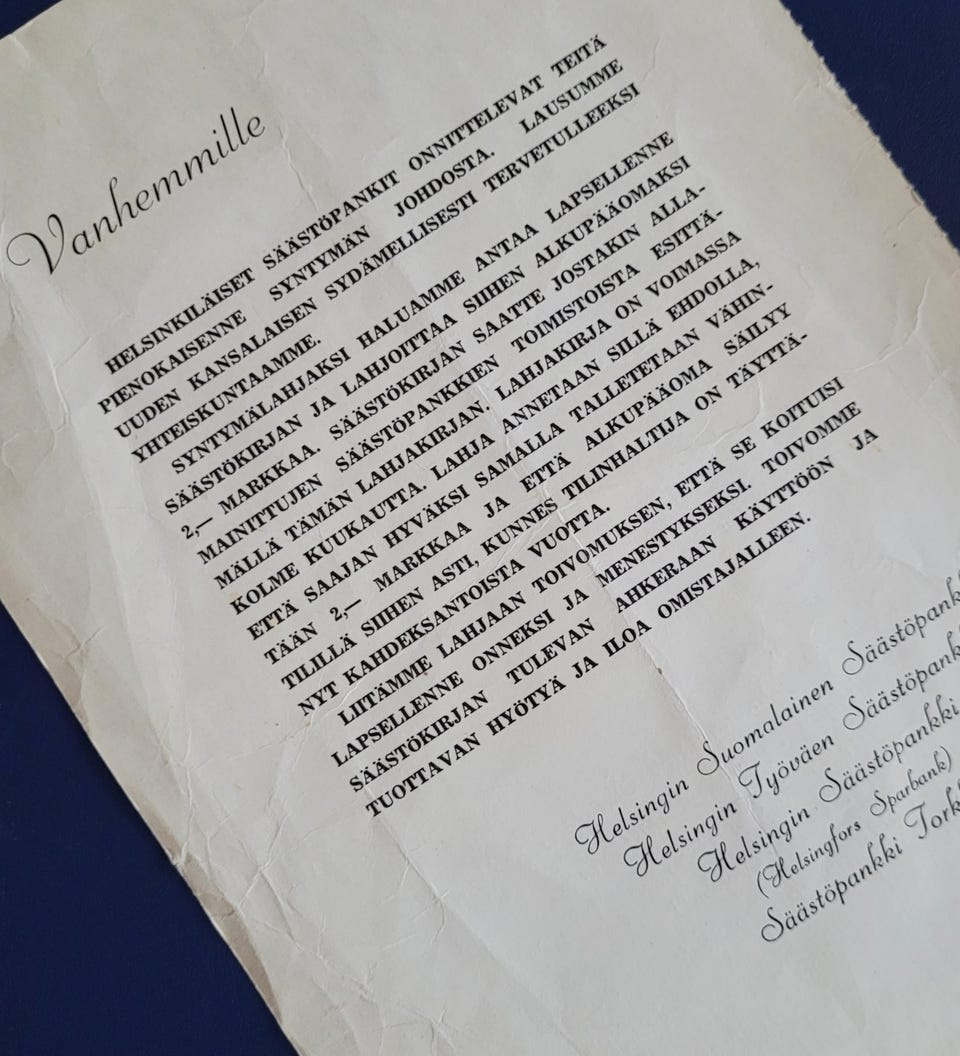 Vanhemmille
HELSINKILÄISET SÄÄSTÖPANKIT ONNITTELEVAT TEITÄ
PIENOKAISENNE SYNTYMÄN JOHDOSTA. LAUSUMME
UUDEN KANSALAISEN SYDÄMELLISESTI TERVETULLEEKSI
YHTEISKUNTAAMME.
SYNTYMÄLAHJAKSI HALUAMME ANTAA LAPSELLENNE
SÄÄSTÖKIRJAN JA LAHJOITTAA SIIHEN ALKUPÄÄOMAKSI
2,— MARKKAA. SÄÄSTÖKIRJAN SAATTE JOSTAKIN ALLA-
MAINITTUJEN SÄÄSTÖPANKKIEN TOIMISTOISTA ESITTÄ-
MÄLLÄ TÄMÄN LAHJAKIRJAN. LAHJAKIRJA ON VOIMASSA
KOLME KUUKAUTTA. LAHJA ANNETAAN SILLÄ EHDOLLA,
ETTÄ SAAJAN HYVÄKSI SAMALLA TALLETETAAN VÄHIN-
TÄÄN 2,— MARKKAA JA ETTÄ ALKUPÄÄOMA SÄILYY
TILILLÄ SIIHEN ASTI, KUNNES TILINHALTIJA ON TÄYTTÄ-
NYT KAHDEKSANTOISTA VUOTTA.
LIITÄMME LAHJAAN TOIVOMUKSEN, ETTÄ SE KOITUISI
LAPSELLENNE ONNEKSI JA MENESTYKSEKSI. TOIVOMME
SÄÄSTÖKIRJAN TULEVAN AHKERAAN KÄYTTÖÖN JA
TUOTTAVAN HYÖTYÄ JA ILOA OMISTAJALLEEN.
Helsingin Suomalainen Säästöpank
Helsingin Työväen Säästöpank
Helsingin Säästöpankki
(Helsingfors Sparbank)
Säästöpankki Tork